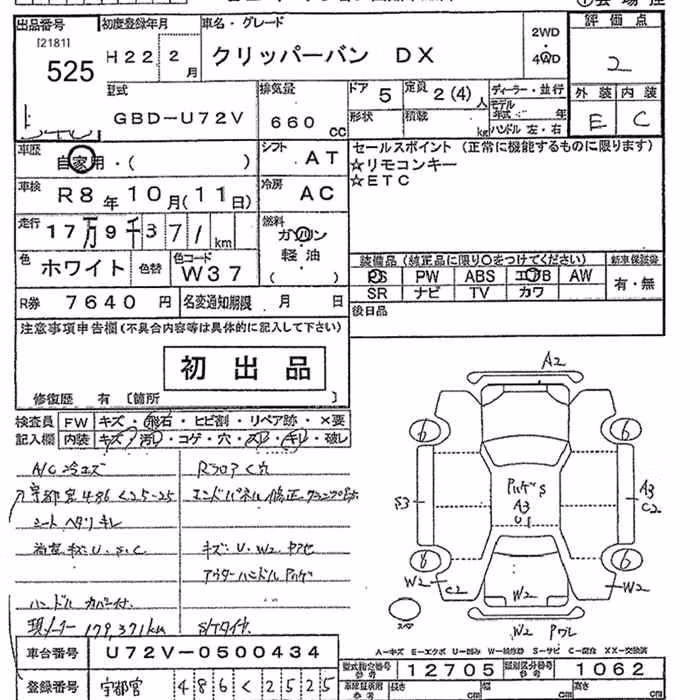 出品番号
[2181]
525
初度登録年月
H22.2月
車名・グレード
クリッパーバン DX
2WD
・
4WD
評価点
2
外装 内装
E C
型式
GBD-U72V
排気量
660 CC
ドア 5
定員 2(4)人
形状
積載 kg
ディーラー・並行
モデル
年式 年
ハンドル 左・右
車歴
自家用・( )
シフト AT
セールスポイント (正常に機能するものに限ります)
☆リモコンキー
☆ETC
車検 R8年10月(11日)
冷房 AC
走行 17万9千371km
燃料
ガソリン
軽油
( )
色 ホワイト
色替
色コード W37
装備品 (純正品に限り○をつけてください)
新車保証書
PS PW ABS エアB AW
有・無
SR ナビ TV カワ
R券 7640円
名変通知期限 月 日
後日品
注意事項申告欄(不具合内容等は具体的に記入して下さい)
初出品
修復歴 有 [箇所 ]
検査員 FW キズ・飛石・ヒビ割・リペア跡・×要
記入欄 内装 キズ・汚レ・コゲ・穴・スレ・キレ・破レ
A/C冷エズ
Rフロアく穴
宇都宮486く25-25
エンドパネル修正
シートヘタリキレ
キズ・U・W2
アウターハンドル
ハンドルカバー付
現メーター179,371km
S/Tタイヤ
A2
6 6
S3
A3
C2
A3
U1
8 6
W2 C2
W2
W2
W2
スペア
A-キズ E-エクボ U-凹み W-補修跡 S-サビ C-腐食 XX-交換済
車台番号 U72V-0500434
登録番号 宇都宮 486く2525
型式指定番号 12705
類別区分番号 1062
車庫証明用参考
長さ
幅
高さ
cm